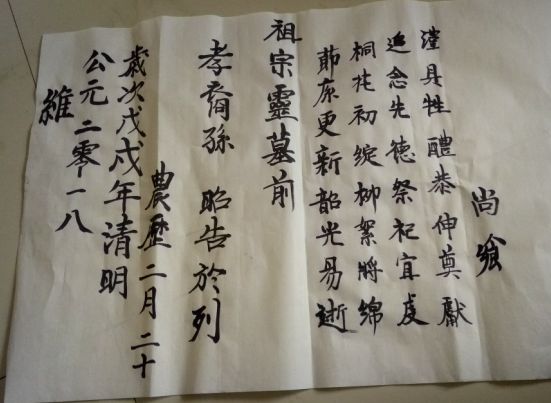 維
公元二零一八
歲次戊戌年清明
農歷二月二十
孝裔孫 昭告於列
祖宗靈墓前
節序更新韶光易逝
桐花初綻柳絮將綿
追念先德祭祀宜虔
謹具牲醴恭伸奠獻
尚飨